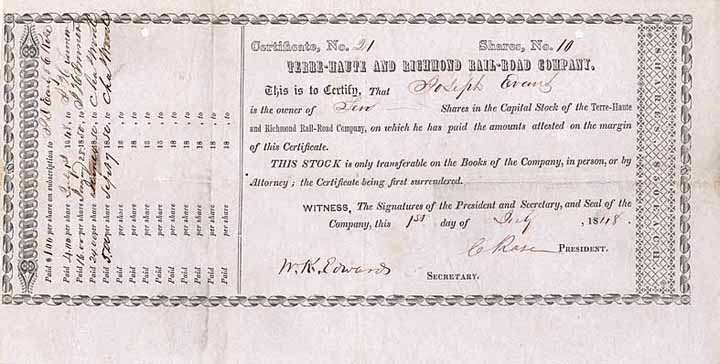 Certificate, No. 21 Shares, No. 10
TERRE-HAUTE AND RICHMOND RAIL-ROAD COMPANY.
This is to Certify, That Joseph Evans
is the owner of Ten Shares in the Capital Stock of the Terre-Haute
and Richmond Rail-Road Company, on which he has paid the amounts attested on the margin
of this Certificate.
THIS STOCK is only transferable on the Books of the Company, in person, or by
Attorney; the Certificate being first surrendered.
WITNESS, The Signatures of the President and Secretary, and Seal of the
Company, this 1st day of July, 1848.
C Rose PRESIDENT.
W. K. Edwards
SECRETARY.
Paid $1.00 per share on subscription to
Paid 4.00 per share 18 to
Paid per share 18 50, to
Paid per share 18 50, to Cha Wood
Paid 5.00 per share Sept 7 18 50, to Cha Wood
Paid per share 18 , to
Paid per share 18 , to
Paid per share 18 , to
Paid per share 18 , to
Paid per share 18 , to
SHARES $50 EACH